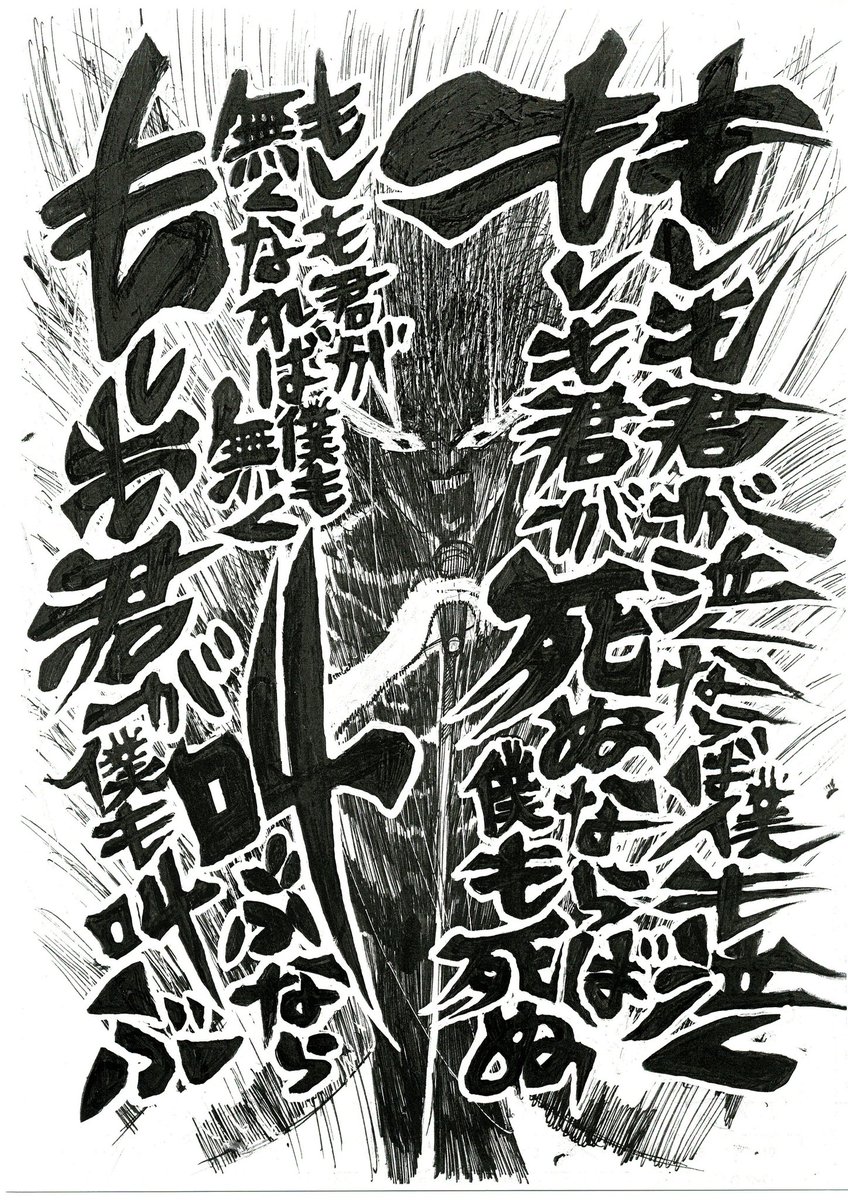 もしも君が泣ならば僕も泣く
もしも君が死ぬならば
僕も死ぬ
もしも君が
無くなれば僕も
無く
もしも君が
叫ぶなら
僕も叫ぶ